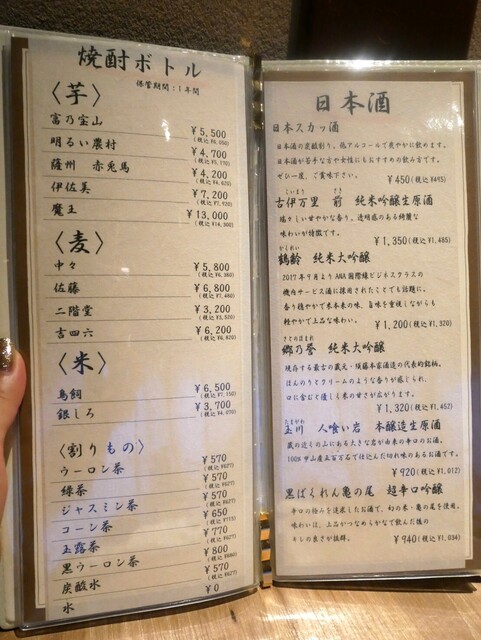 焼酎ボトル
保管期間：1年間
〈芋〉
富乃宝山 ¥5,500
(税込¥6,050)
明るい農村 ¥4,700
(税込¥5,170)
薩州 赤兎馬 ¥4,200
(税込¥4,620)
伊佐美 ¥7,200
(税込¥7,920)
魔王 ¥13,000
(税込¥14,300)
〈麦〉
中々 ¥5,800
(税込¥6,380)
佐藤 ¥6,800
(税込¥7,480)
二階堂 ¥3,200
(税込¥3,520)
吉四六 ¥6,200
(税込¥6,820)
〈米〉
鳥飼 ¥6,500
(税込¥7,150)
銀しろ ¥3,700
(税込¥4,070)
〈割りもの〉
ウーロン茶 ¥570
(税込¥627)
緑茶 ¥570
(税込¥627)
ジャスミン茶 ¥570
(税込¥627)
コーン茶 ¥650
(税込¥715)
玉露茶 ¥770
黒ウーロン茶 ¥800
(税込¥880)
炭酸水 ¥570
(税込¥627)
水 ¥0
日本酒
日本スカッ酒
日本酒の炭酸割り。低アルコールで爽やかに飲めます。
日本酒が苦手な方や女性にもおすすめの飲み方です。
ぜひ一度、ご賞味下さい。
¥450(税込¥495)
こいまり さき
古伊万里 前 純米吟醸生原酒
瑞々しい甘やかな香り。透明感のある綺麗な
味わいが特徴です。
¥1,350(税込¥1,485)
かくれい
鶴齢 純米大吟醸
2017年9月よりANA国際線ビジネスクラスの
機内サービス酒に採用されたことでも話題に。
香り穏やかで米本来の味、旨味を重視しながらも
軽やかで上品な味わい。
¥1,200(税込¥1,320)
さとのほまれ
郷乃誉 純米大吟醸
現存する最古の蔵元・須藤本家酒造の代表的銘柄。
ほんのりとクリームのような香りが感じられ、
口に含むと優しく米の甘さが広がります。
¥1,320(税込¥1,452)
たまがわ
玉川 人喰い岩 本醸造生原酒
蔵の近くの山にある大きな岩が由来の辛口のお酒。
100%甲山産五百万石で仕込んだ切れ味のあるお酒です。
¥920(税込¥1,012)
黒ばくれん亀の尾 超辛口吟醸
辛口の極みを追求したお酒で、幻の米・亀の尾を使用。
味わいは、上品かつなめらかで飲んだ後の
キレの良さが抜群。
¥940(税込¥1,034)